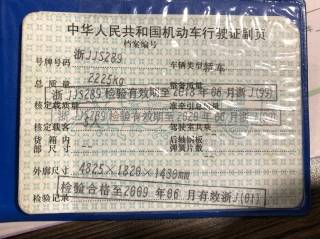 中华人民共和国机动车行驶证副页
档案编号
号牌号码 浙JJS289 车辆类型 轿车
总质量 2225kg
浙JJS289检验有效期至2018年06月浙J(99)
核定载质量 准牵引总质量
浙JJS289检验有效期至2020年06月浙J
核定载客 驾驶室共乘
货箱内部尺寸 后轴钢板弹簧片数
外廓尺寸 4825×1820×1430mm
检验记录 检验合格至2009年06月有效浙J(01)